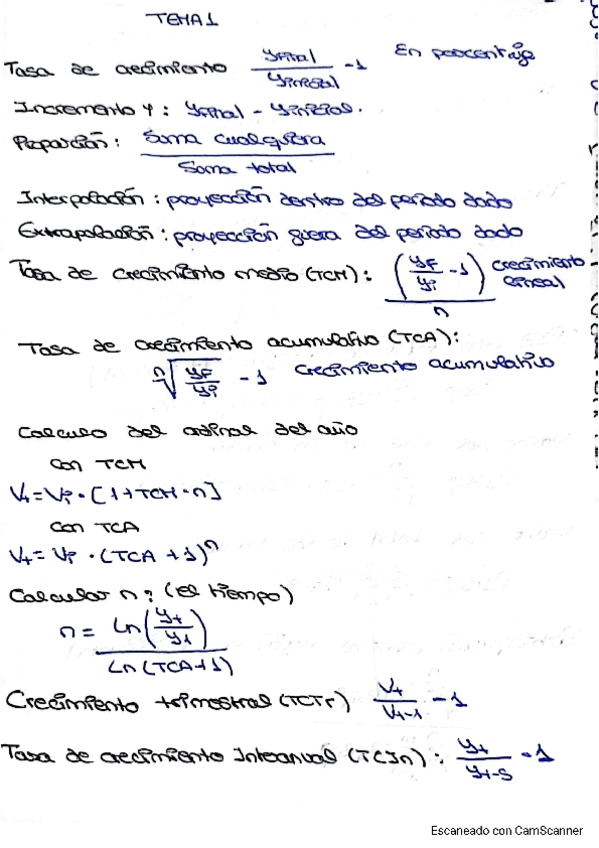 TEMA1
Tasa de crecimiento yfinal / yinicial -1 En porcentaje
Incremento Y: yfinal - yinicial.
Proporción: Suma cualquiera / Suma total
Interpolación: proyección dentro del periodo dado
Extrapolación: proyección fuera del periodo dado
Tasa de crecimiento medio (TCM): (yF/yi -1) / n crecimiento lineal
Tasa de crecimiento acumulativo (TCA):
ⁿ√(yF/yi) -1 crecimiento acumulativo
Calculo del ordinal del año
Con TCM
Vt = Vi · [1+TCM·n]
Con TCA
Vt = Vi · (TCA +1)ⁿ
Calcular n: (el tiempo)
n = Ln(yt/y1) / Ln(TCA+1)
Crecimiento trimestral (TCTr) Vt/Vt-1 -1
Tasa de crecimiento Interanual (TCIn): yt/yt-s -1
Escaneado con CamScanner